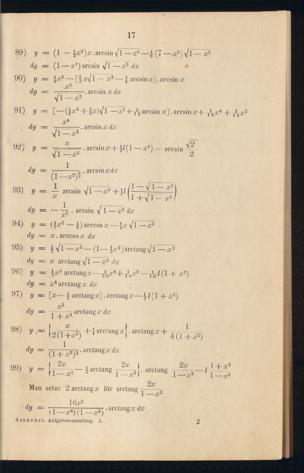 17
89) y = (1 − ⅓x²)x . arcsin √1−x² − ⅑(7−x²)√1−x²
dy = (1−x²) arcsin √1−x² dx
90) y = ¼x² − [½x√1−x² − ¼ arcsin x] . arcsin x
dy = x²/√1−x² . arcsin x dx
91) y = [−(¼x³ + ⅜x)√1−x² + 3/16 arcsin x] . arcsin x + 1/16 x⁴ + 3/16 x²
dy = x⁴/√1−x² . arcsin x dx
92) y = x/√1−x² . arcsin x + ½l(1−x²) − arcsin √2/2
dy = 1/(1−x²)^{3/2} . arcsin x dx
93) y = 1/x arcsin √1−x² + ½l(1−√1−x²/1+√1−x²)
dy = −1/x² . arcsin √1−x² dx
94) y = (½x² − ¼) arccos x − ¼x √1−x²
dy = x . arccos x dx
95) y = ½√1−x² − (1−½x²) arctang √1−x²
dy = x arctang √1−x² dx
96) y = ⅕x⁵ arctang x − 1/20 x⁴ + 1/10 x² − 1/10 l(1+x²)
dy = x⁴ arctang x dx
97) y = [x − ½ arctang x] . arctang x − ½l(1+x²)
dy = x²/1+x² arctang x dx
98) y = {x/2(1+x²) + ¼ arctang x} . arctang x + 1/4(1+x²)
dy = 1/(1+x²)² . arctang x dx
99) y = {2x/1−x² − ½ arctang 2x/1−x²} . arctang 2x/1−x² − l 1+x²/1−x²
Man setze 2 arctang x für arctang 2x/1−x²
dy = 16x²/(1−x⁴)(1−x²) . arctang x dx
Sohncke's Aufgabensammlung. I. 2